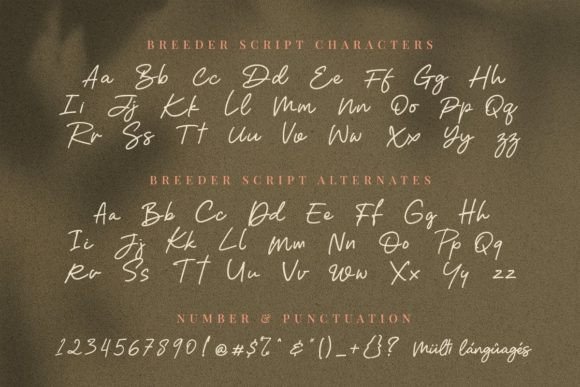 BREEDER SCRIPT CHARACTERS
Aa Bb Cc Dd Ee Ff Gg Hh
Ii Jj Kk Ll Mm Nn Oo Pp Qq
Rr Ss Tt Uu Vv Ww Xx Yy zz
BREEDER SCRIPT ALTERNATES
Aa Bb Cc Dd Ee Ff Gg Hh
Ii Jj Kk Ll Mm Nn Oo Pp Qq
Rr Ss Tt Uu Vv Ww Xx Yy zz
NUMBER & PUNCTUATION
1234567890!@#$%^&*()_+{}? Mültì lángûagés